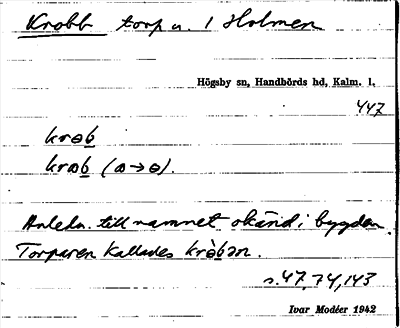 Krobb torp u. 1 Holmen
Högsby sn, Handbörds hd, Kalm. l.
447
krɵb
krɷb (ɷ→ɵ).
Anledn. till namnet okänd i bygden.
Torparen kallades krɵ̀bən.
s. 47, 74, 143
Ivar Modéer 1942